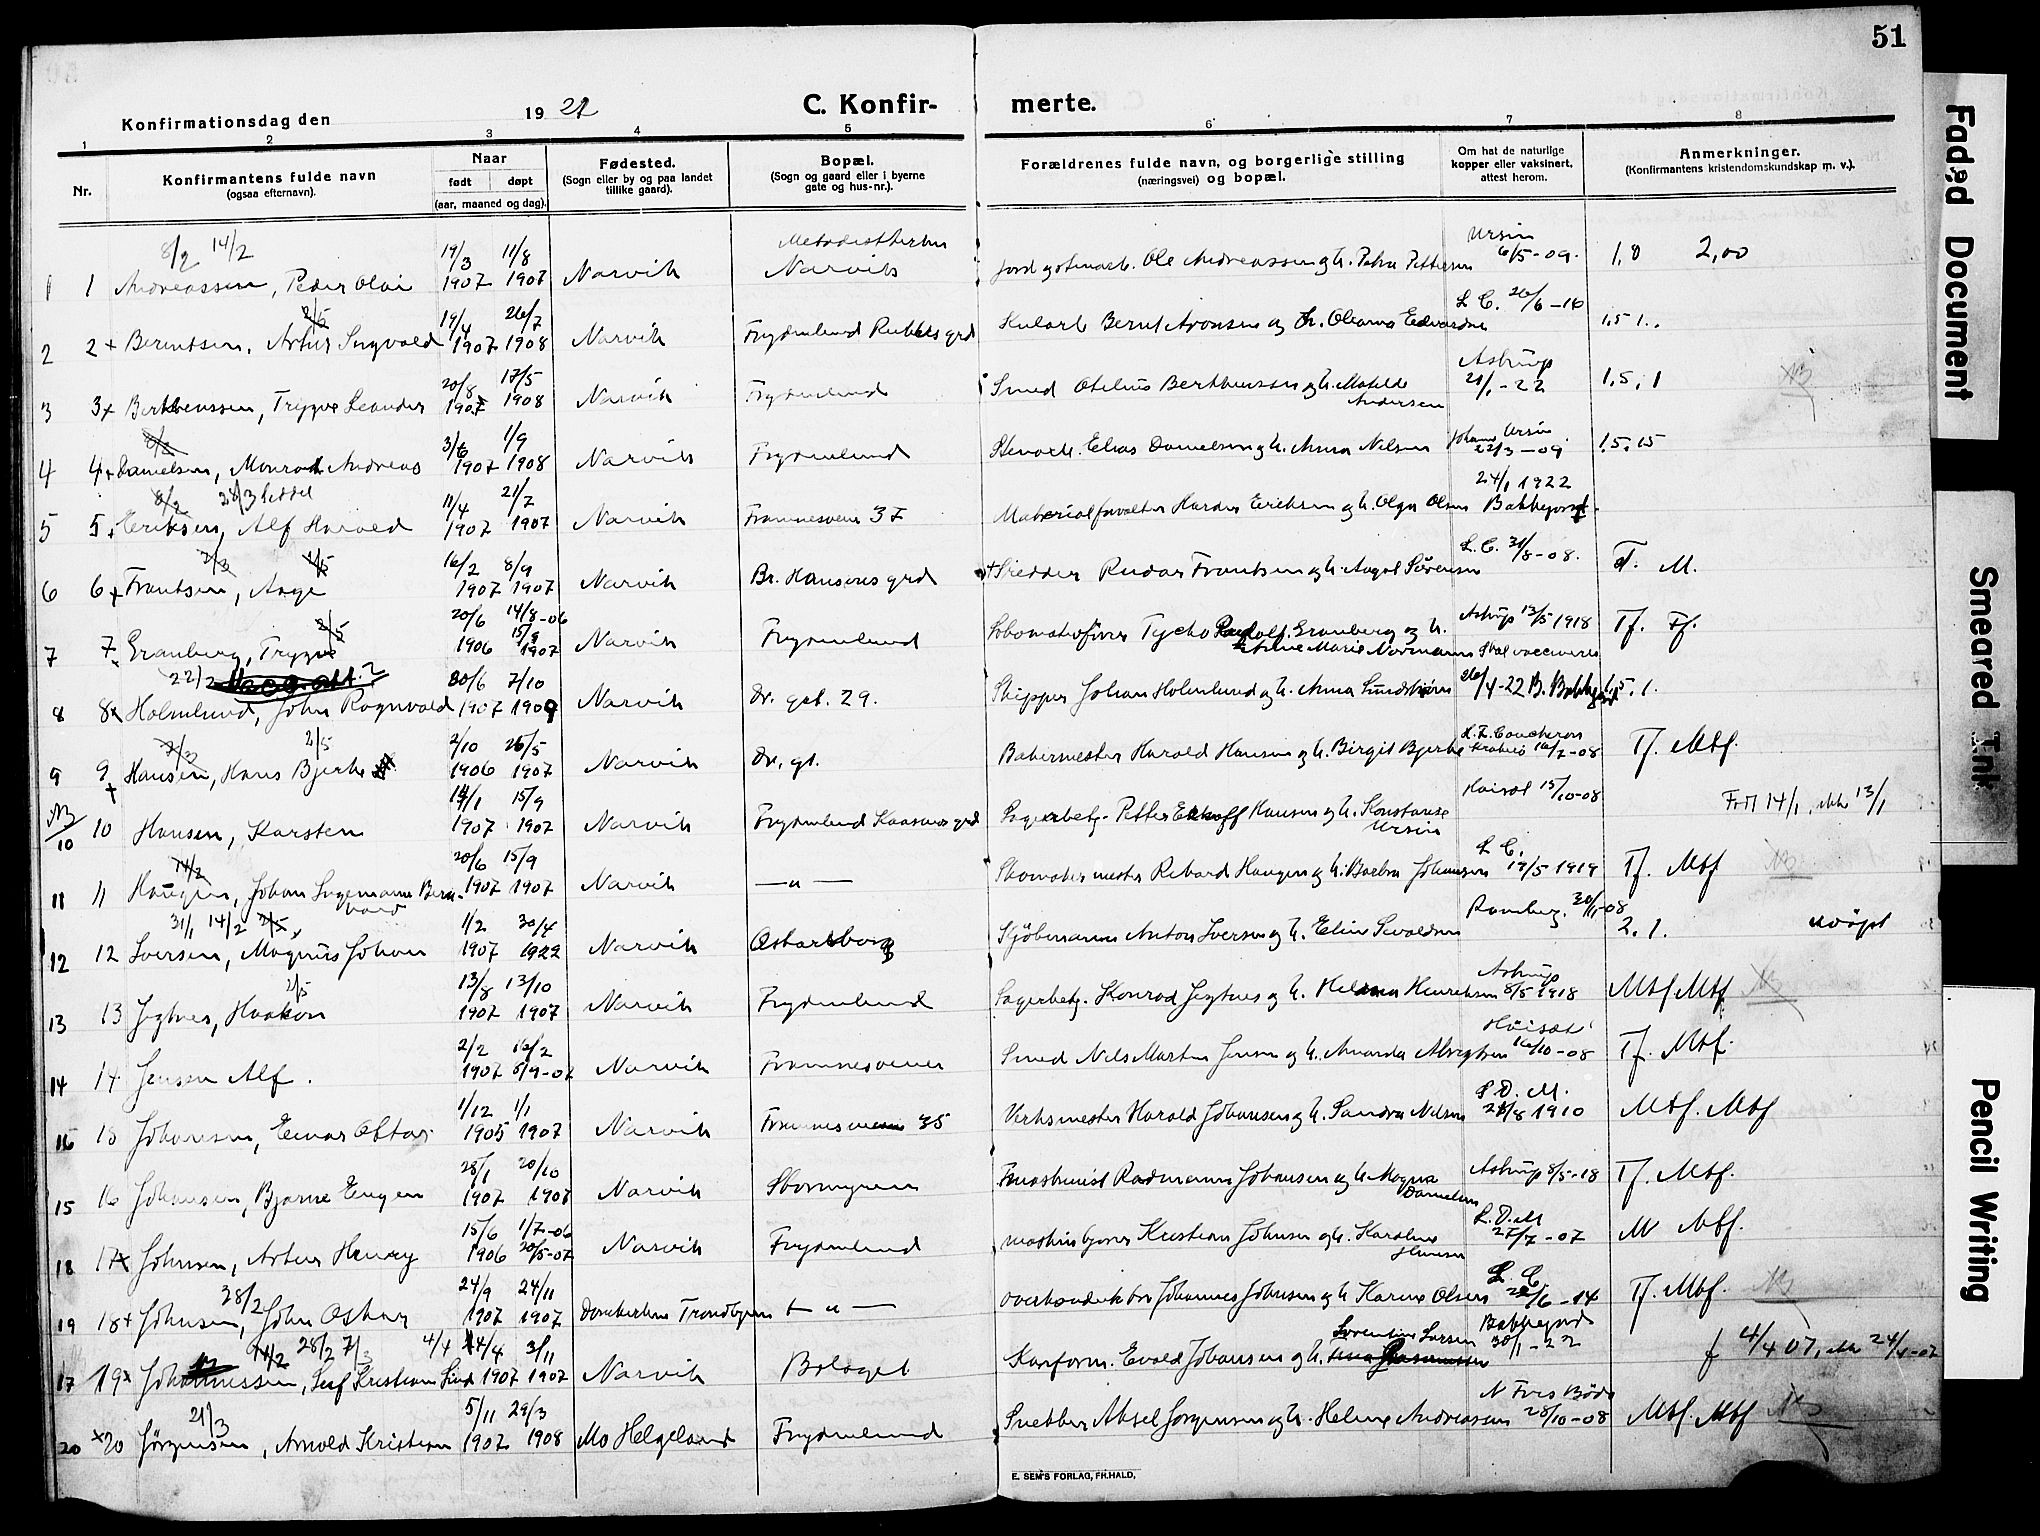 51
Konfirmationsdag den 19 22 C. Konfir- merte.
1 2 3 4 5 6 7 8
Nr. Konfirmantens fulde navn (ogsaa efternavn). Naar født døpt (aar, maaned og dag). Fødested. (Sogn eller by og paa landet tillike gaard). Bopæl. (Sogn og gaard eller i byerne gate og hus-nr.). Forældrenes fulde navn, og borgerlige stilling (næringsvei) og bopæl. Om hat de naturlige kopper eller vaksinert, attest herom. Anmerkninger. (Konfirmantens kristendomskundskap m. v.).
8/2 14/2 19/3 11/8 Ursin
1 1 Andreassen, Peder Olai 1907 1907 Narvik Narvik Ole Andreassen og h. Petra Pettersen 6/5-09. 1,8 2,00
2/5 19/4 26/7 L C. 26/6-16
2 2+ Berntsen, Artur Sigvald 1907 1908 Narvik Frydenlund Bernt Aronsen og h. Oleanna
20/8 17/5 Astrup
3 3x Bertheussen, Trygve Leander 1907 1908 Narvik Frydenlund Smed Otelius Bertheussen og h. Matilde Andersen 21/1-22 1,5, 1
8/2 3/6 1/9 Ursin
4 4+ Danielsen, Monrad Andreas 1907 1908 Narvik Frydenlund Elias Danielsen og h. Anna Nilsen 22/3-09 1.5.15
8/2 28/3 seddel 11/4 21/7 24/1 1922
5 5+ Eriksen, Alf Harald 1907 1907 Narvik Framnesveien 37 Materialforvalter Eriksen og h. Olga Olsen Bakkegaard
2/3 16/2 8/9 L. C. 31/8-08.
6 6+ Frantsen, Aage 1907 1907 Narvik Br. Hansens grd Rudar Frantsen og h. Aagot Sörensen T. M.
2/5 20/6 14/8-06 Astrup 13/5 1918
7 7 Granberg, Trygve 1906 15/9 1907 Narvik Frydenlund Lokomotivfører Tycho Rudolf Granberg og h. Marie Normann Skal vaccineres Tf. Tf.
22/2 30/6 7/10
8 8x Holmlund, John Ragnvald 1907 1909 Narvik Dr. gt. 29. Skipper Johan Holmlund og h. Anna 26/4-22 B. Bakkegaard 1.5.1.
7/3 2/5 2/10 26/5
9 9+ Hansen, Hans Bjerke 1906 1907 Narvik Dr. gt. Bakermester Harald Hansen og h. Birgit Bjerke 16/2-08 Tf. Mtf.
NB 14/1 15/9 15/10-08
10 10 Hansen, Karsten 1907 1907 Narvik Frydenlund Petter Hansen og h. Konstanse Ursin Født 14/1, ikke 13/1
14/2 20/6 15/9 L C.
11 11 Haugen, Johan Ingemann Bern- hard 1907 1907 Narvik — " — Skomakermester Rikard Haugen og h. Barbra Johansen 19/5 1919 Tf. Mtf NB
31/1 14/2 2/5 1/2 30/4 Ramberg. 20/1-08
12 12 Iversen, Magnus Johan 1907 1922 Narvik Oskarsborg Sjömann Anton Iversen og h. Eline 2.1. udöpt
2/5 13/8 13/10 Astrup
13 13 Jegtnes, Haakon 1907 1907 Narvik Frydenlund Konrad Jegtnes og h. Helena Henriksen 8/5 1918 Mtf Mtf NB
2/2 16/2
14 14 Jensen Alf. 1907 8/9-07 Narvik Framnesveien Smed Nils Martin Jensen og h. Amanda 16/10-08 Tf. Mtf.
1/12 1/1 L D. M.
16 15 Johansen, Einar Oktav 1905 1907 Narvik Framnesveien 35 Verksmester Harald Johansen og h. Sandra Nilsen 21/8 1910 Mtf. Mtf
28/1 20/10
15 16 Johansen, Bjarne Eugen 1907 1907 Narvik Stormyren Johansen og h. Magna Danielsen Astrup 8/5-18 Tf. Mtf.
15/6 1/7-06 L. D. M
18 17x Johnsen, Artur Henry 1906 20/5-07 Narvik Frydenlund Kristian Johnsen og h. Karoline Hansen 27/7-07 M Mtf.
28/2 24/9 24/11 L C.
19 18+ Johnsen, John Oskar 1907 1907 Trondhjem — " — Johannes Johnsen og h. Karine Olsen 22/6-14 Tf. Mtf. NB
14/2 28/2 7/3 4/4 14/4 3/11 Lorentine Larsen Bakkegaard
17 19x Johannessen, Leif Kristian Lind 1907 1907 Narvik Bolaget Evald Johansen og h. 30/1-22 f 4/4 07, ikke 24/4-07
21/3 5/11 29/3
20 x20 Jörgensen, Arnold Kristian 1907 1908 Mo Helgeland Frydenlund Snekker Aksel Jørgensen og h. Heline Andreassen 28/10-08 Mtf. Mtf NB
E. SEM'S FORLAG, FR.HALD,
Faded Document
Smeared Ink
Pencil Writing